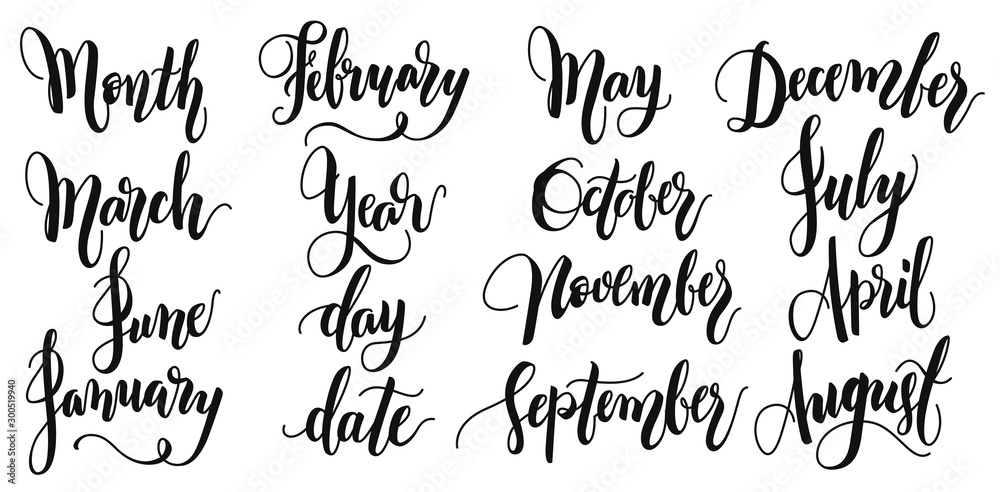 Month February May December
March Year October July
June day November April
January date September August
Adobe Stock | #300519940